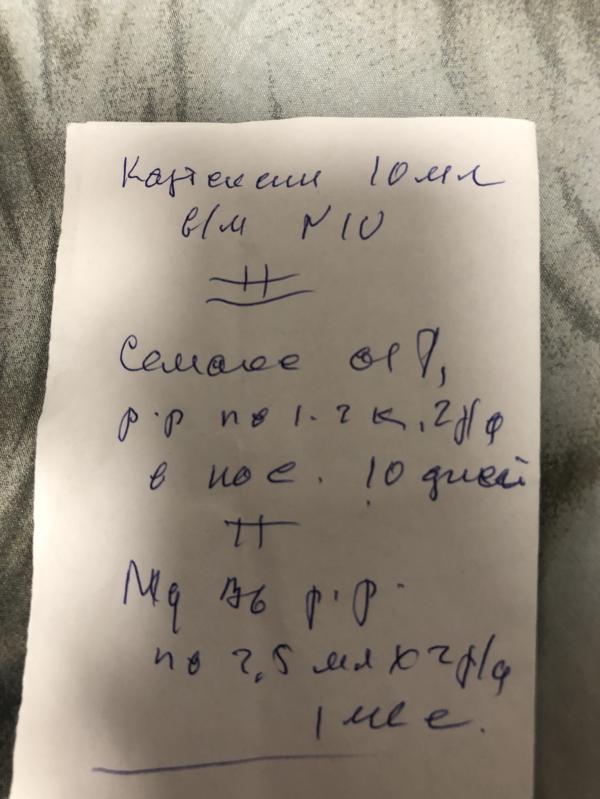 Кортексин 10 мл
в/м N10
Семакс 0,1%,
р-р по 1-2 к. 2 р/д
в нос. 10 дней
Mg B6 р-р
по 2,5 мл х 2 р/д
1 мес.